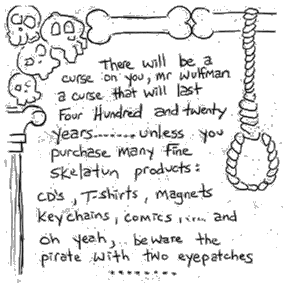 There will be a
curse on you, mr wulfman
a curse that will last
Four Hundred and twenty
years....... unless you
purchase many fine
skelatun products:
CD's, T-shirts, magnets
Key chains, comics, .... and
oh yeah, beware the
pirate with two eyepatches
........